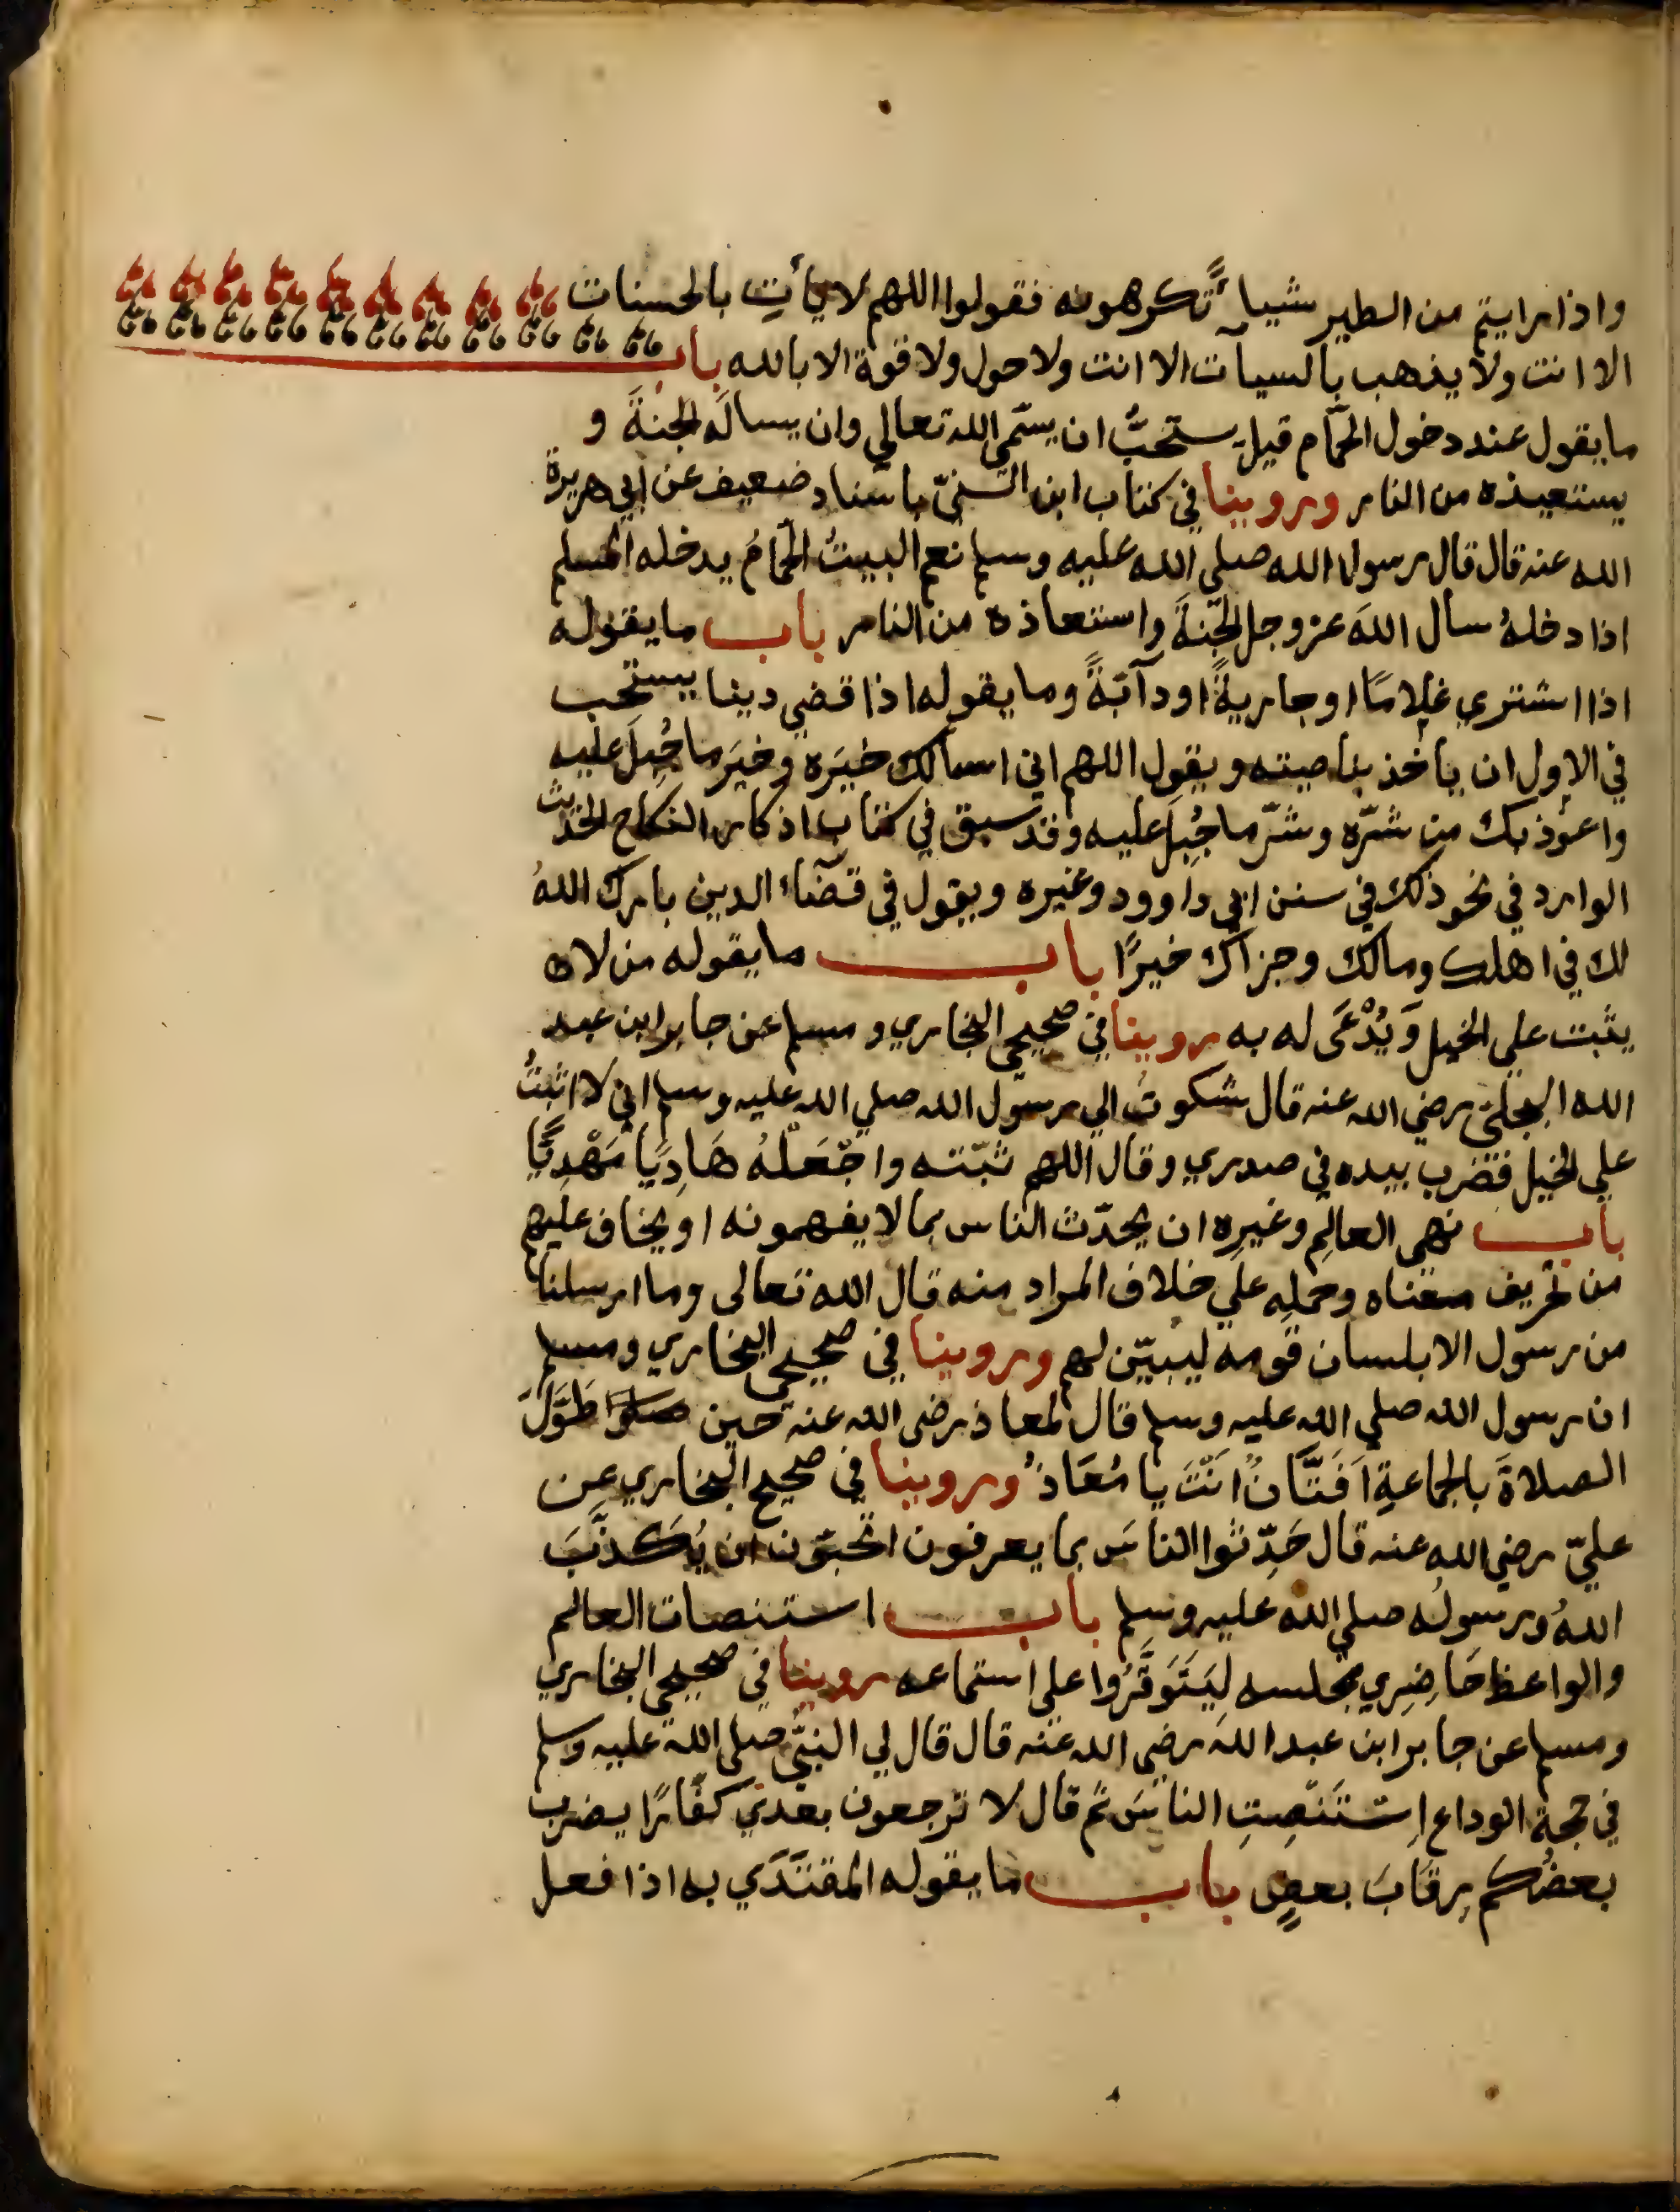 واذا رايتم من الطير شيأً تكرهونه فقولوا اللهم لا يأتِ بالحسنات
الا انت ولا يذهب بالسيآت الا انت ولا حول ولا قوة الا بالله باب
ما يقول عند دخول الحمّام قيل يستحبُّ ان يسمّي الله تعالي وان يسالَه الجنةَ و
يستعيذه من النار وروينا في كتاب ابن السنيّ باسناد ضعيف عن ابي هريرة
الله عنه قال قال رسول الله صلي الله عليه وسلم نعم البيتُ الحمّامُ يدخله المسلم
اذا دخلهُ سال اللهَ عز وجل الجنّةَ واستعاذه من النار باب ما يقوله
اذا اشتري غلامًا او جاريةً او دآبّةً وما يقوله اذا قضي دينا يستحب
في الاول ان يأخذ بناصيته ويقول اللهم اني اسألك خيَره وخيَر ما جُبِلَ عليه
واعوُذ بك من شرّه وشرّ ما جُبِلَ عليه وقد سبق في كتاب اذكار النكاح الحديث
الوارد في نحو ذلك في سنن ابي داوود وغيره ويقول في قضآء الدين بارك اللهُ
لك في اهلك ومالك وجزاك خيرًا باب ما يقوله من لا
يثبت علي الخيل وَيُدْعَي له به روينا في صحيحي البخاري ومسلم عن جابر ابن عبد
الله البجليّ رضي الله عنه قال شكوتُ الي رسول الله صلي الله عليه وسلم اني لا اثبتُ
علي الخيل فضرب بيده في صدري وقال اللهم ثبّته واجْعَلْهُ هَادِيًا مَهْدِيًّا
باب نهي العالِم وغيرِه ان يحدّث الناس بما لا يفهمونه او يخاف عليهم
من تحريف معناه وحملِه علي خلاف المراد منه قال الله تعالى وما ارسلنا
من رسول الا بلسان قومه ليبيّن لهم وروينا في صحيحي البخاري ومسلم
ان رسول الله صلي الله عليه وسلم قال لمعاذ رضي الله عنه حين طَوَّلَ
الصلاةَ بالجماعةِ اَفَتَّانٌ اَنْتَ يا مُعَاذُ وروينا في صحيح البخاري عن
عليّ رضي الله عنه قال حَدِّثوا الناسَ بما يعرفون اتحبّون ان يُكَذَّبَ
اللهُ ورسولُه صلي الله عليه وسلم باب استنصات العالم
والواعظ حَاضِرِي مجلسه لِيَتَوَفَّرُوا علي استماعه روينا في صحيحي البخاري
ومسلم عن جابر ابن عبد الله رضي الله عنه قال قال لي النبيُّ صلي الله عليه وسلم
في حجة الوداع اِسْتَنْصِتِ الناسَ ثم قال لا ترجعون بعدي كفّارًا يضرب
بعضُكم رِقَابَ بعضٍ باب ما يقوله المقتدَي به اذا فعل